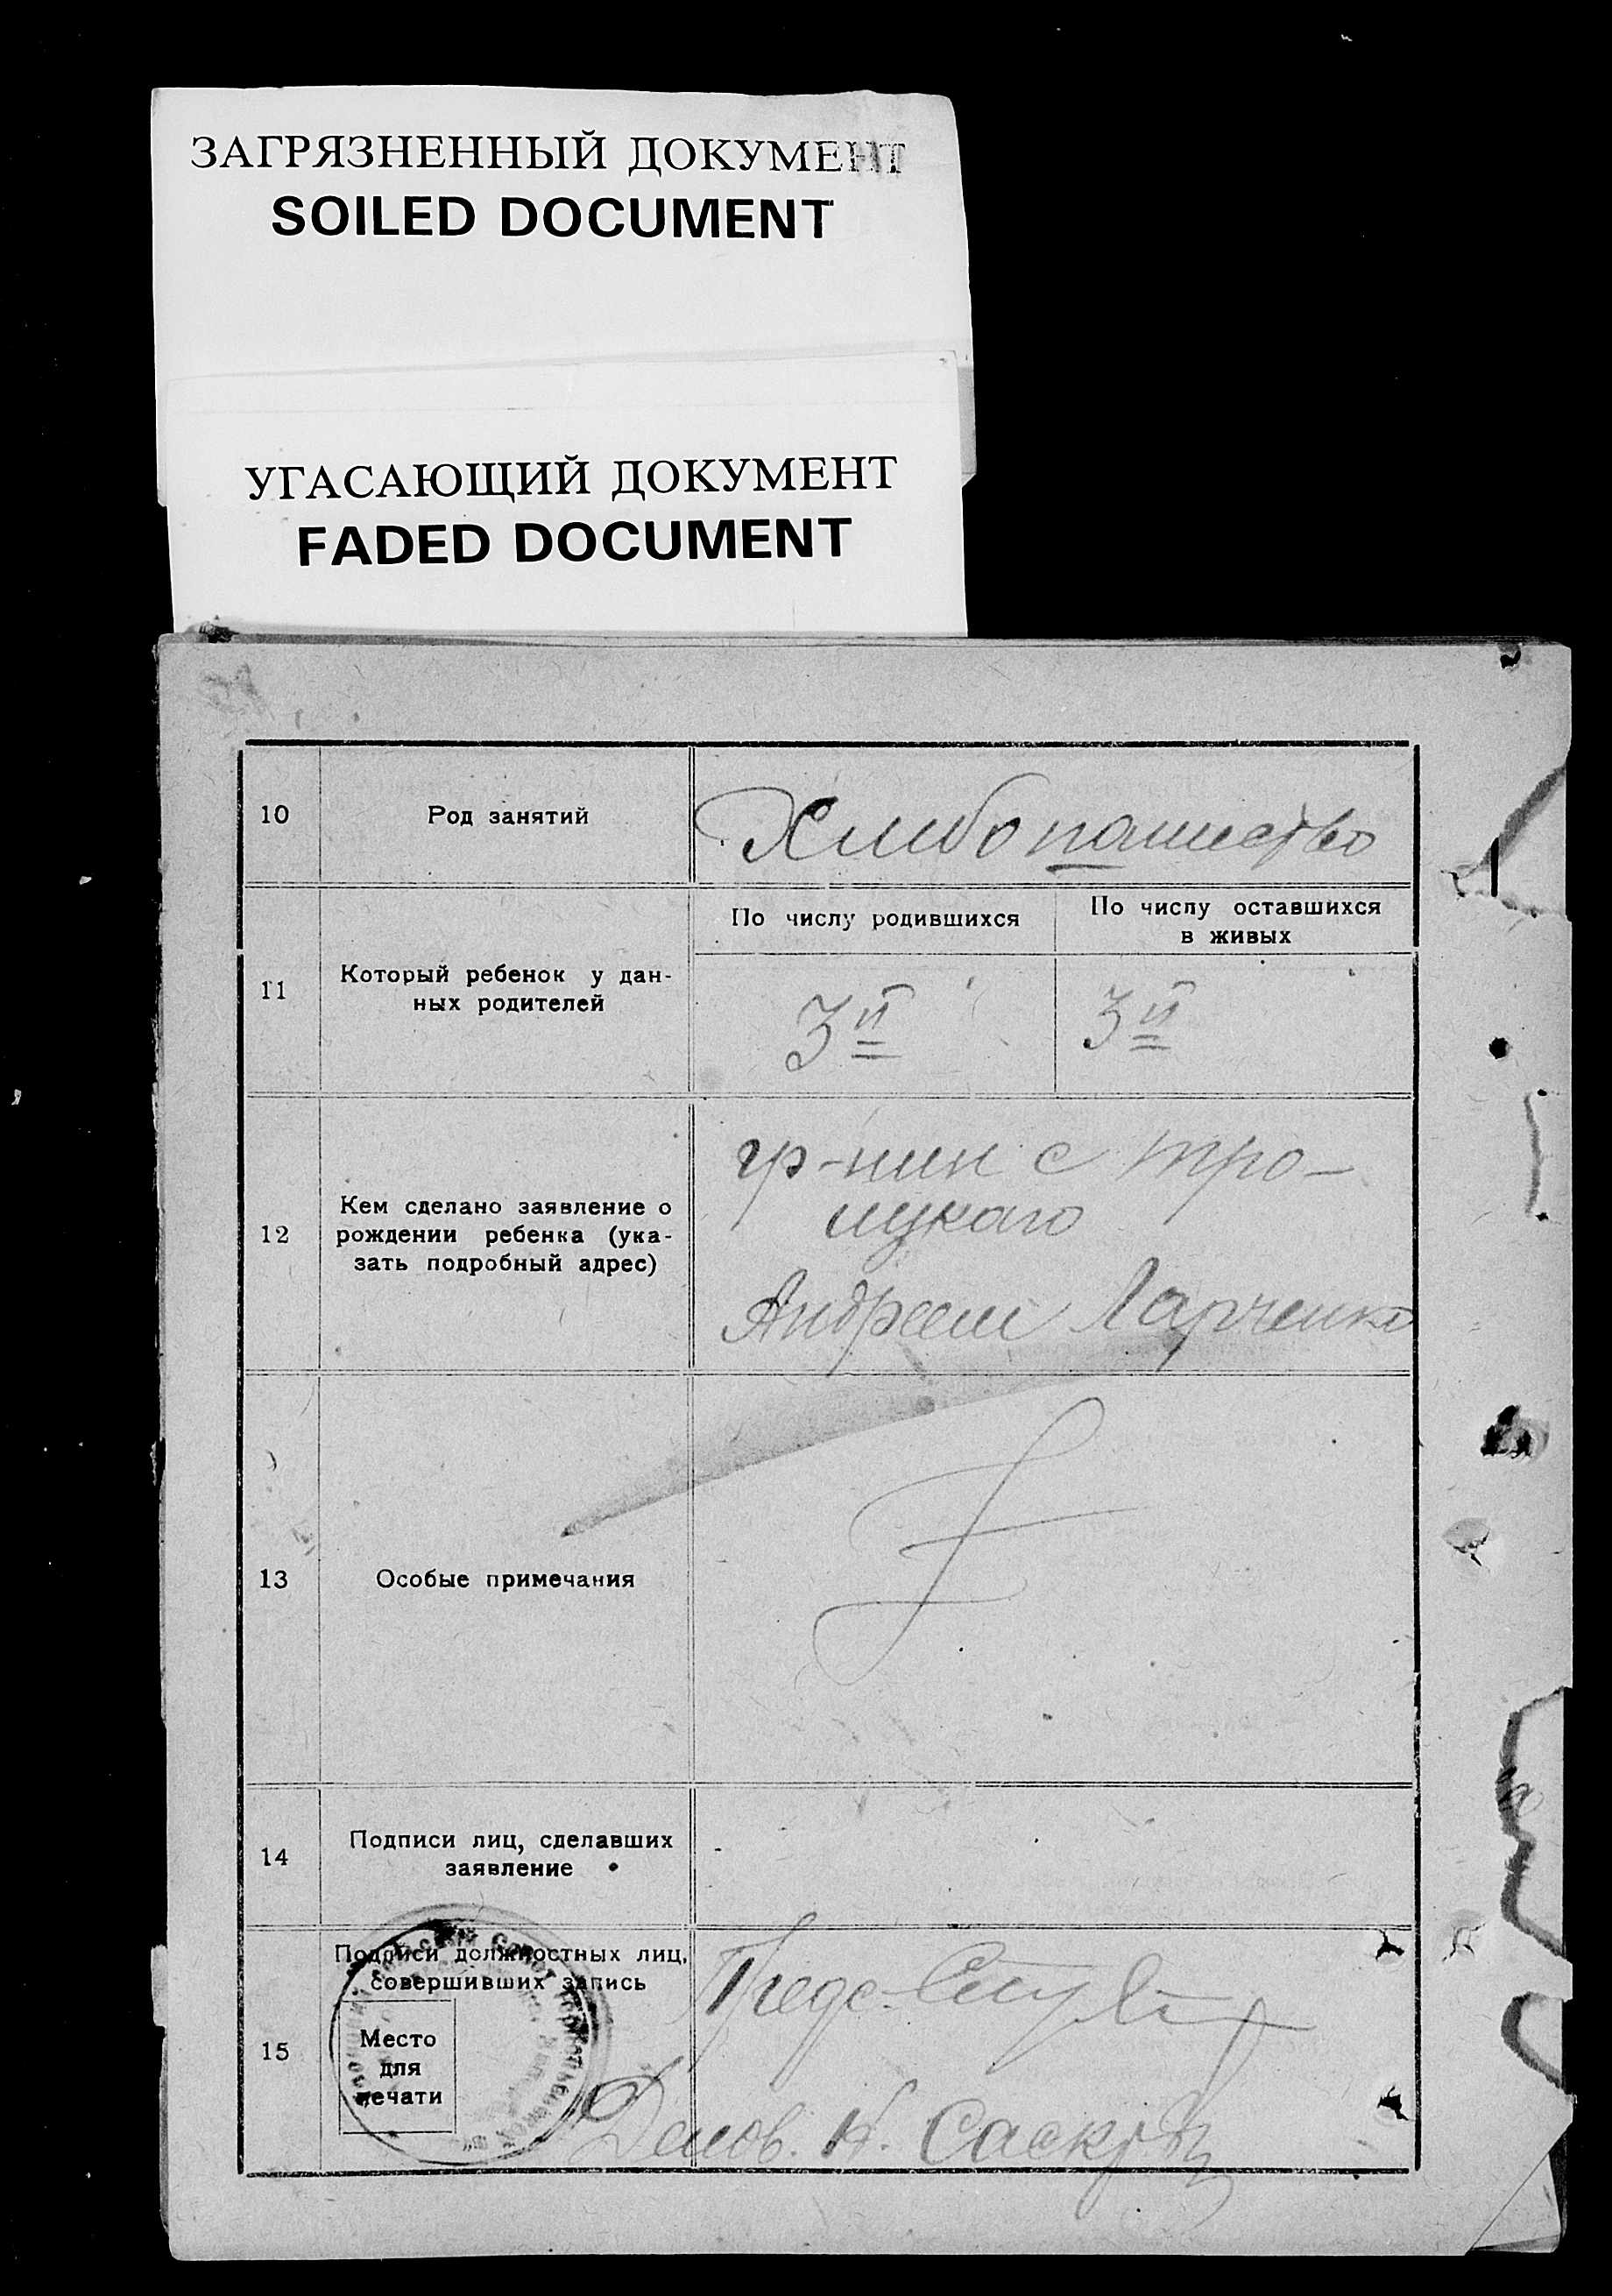 ЗАГРЯЗНЕННЫЙ ДОКУМЕНТ
SOILED DOCUMENT
УГАСАЮЩИЙ ДОКУМЕНТ
FADED DOCUMENT
10
Род занятий
Хлибопашество
11
Который ребенок у дан-
ных родителей
По числу родившихся
По числу оставшихся
в живых
3й
3й
12
Кем сделано заявление о
рождении ребенка (ука-
зать подробный адрес)
гр-нин с Тро-
ицкаго
Андреем Ларченко
13
Особые примечания
14
Подписи лиц, сделавших
заявление
15
Подписи должностных лиц,
совершивших запись
Место
для
печати
Предс.
Делов. Н.